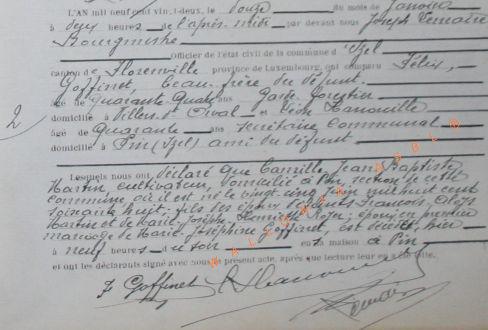 L'AN mil neuf cent vingt-deux, le douze du mois de janvier
à deux heures de l'après-midi par devant nous Joseph Lemaire
Bourgmestre
Officier de l'état civil de la commune d'Izel
canton de Florenville province de Luxembourg, ont comparu Félix
Goffinet, beau-frère du défunt
âgé de quarante quatre ans Garde forestier
domicilié à Villers dt Orval et Léon
âgé de Quarante ans secrétaire communal
domicilié à Pin (Izel) ami du défunt
2
Lesquels nous ont déclaré que Camille Jean Baptiste
Martin, cultivateur, domicilié à Pin, section de cette
commune, où il est né le vingt cinq juin mil huit cent
soixante huit, fils des époux défunts François
Martin et de Marie Josèphe Henriette ; époux en premier
mariage de Marie Joséphine Goffinet, est décédé, hier
à neuf heures du soir en sa maison à Pin
et ont les déclarants signé avec nous le présent acte, après que lecture leur en a été faite.
F Goffinet